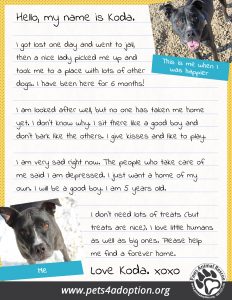 Hello, my name is Koda.
I got lost one day and went to jail,
then a nice lady picked me up and
took me to a place with lots of other
dogs. I have been here for 6 months!
This is me when I
was happier
I am looked after well, but no one has taken me home
yet. I don't know why. I sit there like a good boy and
don't bark like the others. I give kisses and like to play.
I am very sad right now. The people who take care of
me said I am depressed. I just want a home of my
own. I will be a good boy. I am 5 years old.
I don't need lots of treats (but
treats are nice). I love little humans
as well as big ones. Please help
me find a forever home.
Love Koda. xoxo
Me
www.pets4adoption.org